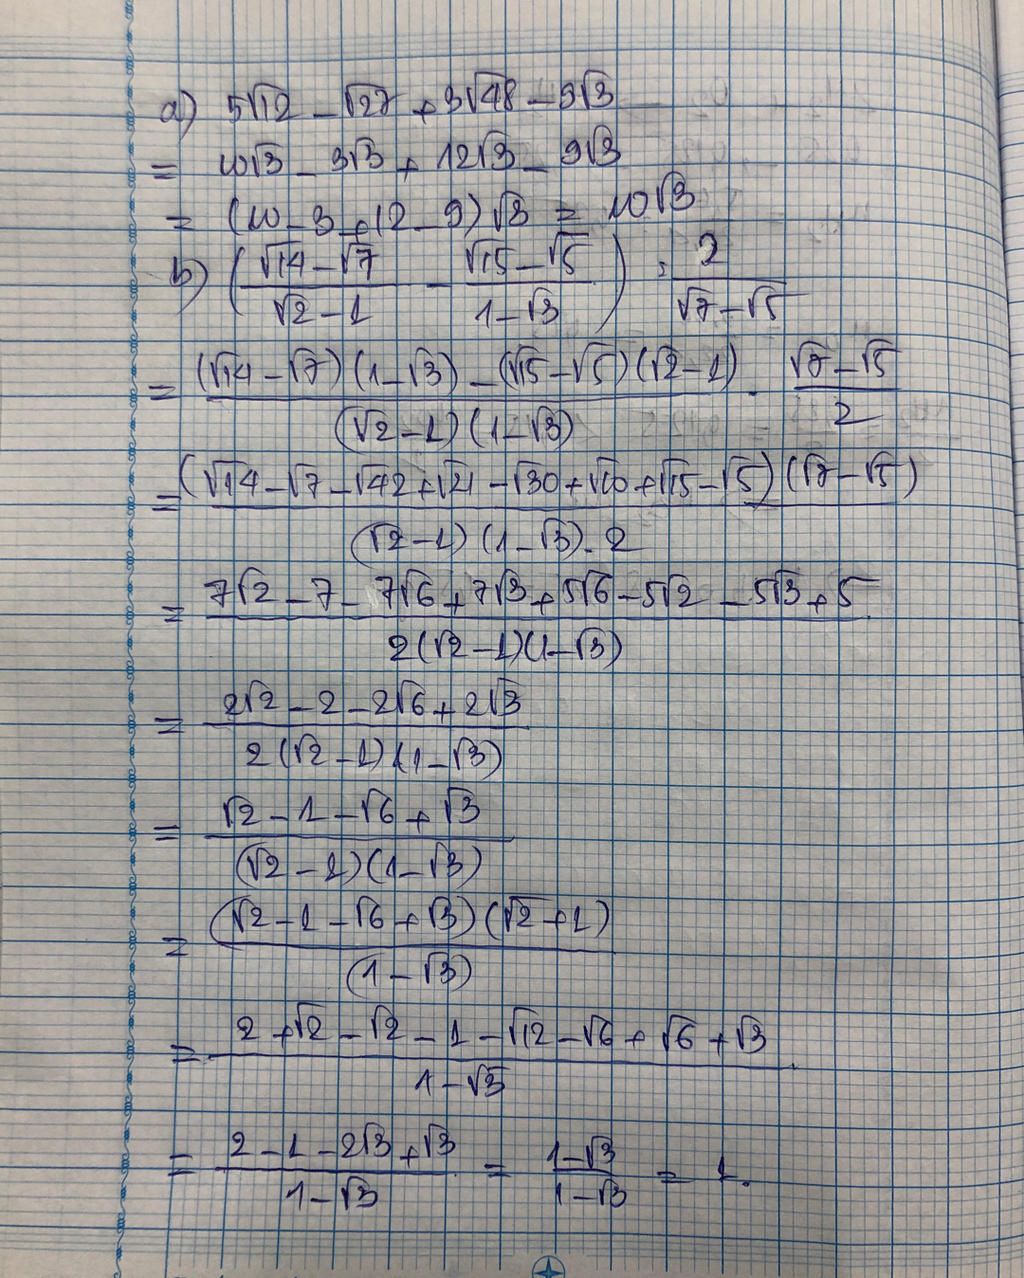 a) 5√12 - √27 + 3√48 - 9√3
= 10√3 - 3√3 + 12√3 - 9√3
= (10 - 3 + 12 - 9)√3 = 10√3
b) ((√14 - √7)/(√2 - 1) - (√15 - √5)/(1 - √3)) : 2/(√7 - √5)
= ((√14 - √7)(1 - √3) - (√15 - √5)(√2 - 1))/((√2 - 1)(1 - √3)) . (√7 - √5)/2
= ((√14 - √7 - √42 + √21 - √30 + √10 + √15 - √5)(√7 - √5))/((√2 - 1)(1 - √3).2)
= (7√2 - 7 - 7√6 + 7√3 + 5√6 - 5√2 - 5√3 + 5)/(2(√2 - 1)(1 - √3))
= (2√2 - 2 - 2√6 + 2√3)/(2(√2 - 1)(1 - √3))
= (√2 - 1 - √6 + √3)/((√2 - 1)(1 - √3))
= ((√2 - 1 - √6 + √3)(√2 + 1))/((1 - √3))
= (2 + √2 - √2 - 1 - √12 - √6 + √6 + √3)/(1 - √3)
= (2 - 1 - 2√3 + √3)/(1 - √3) = (1 - √3)/(1 - √3) = 1.